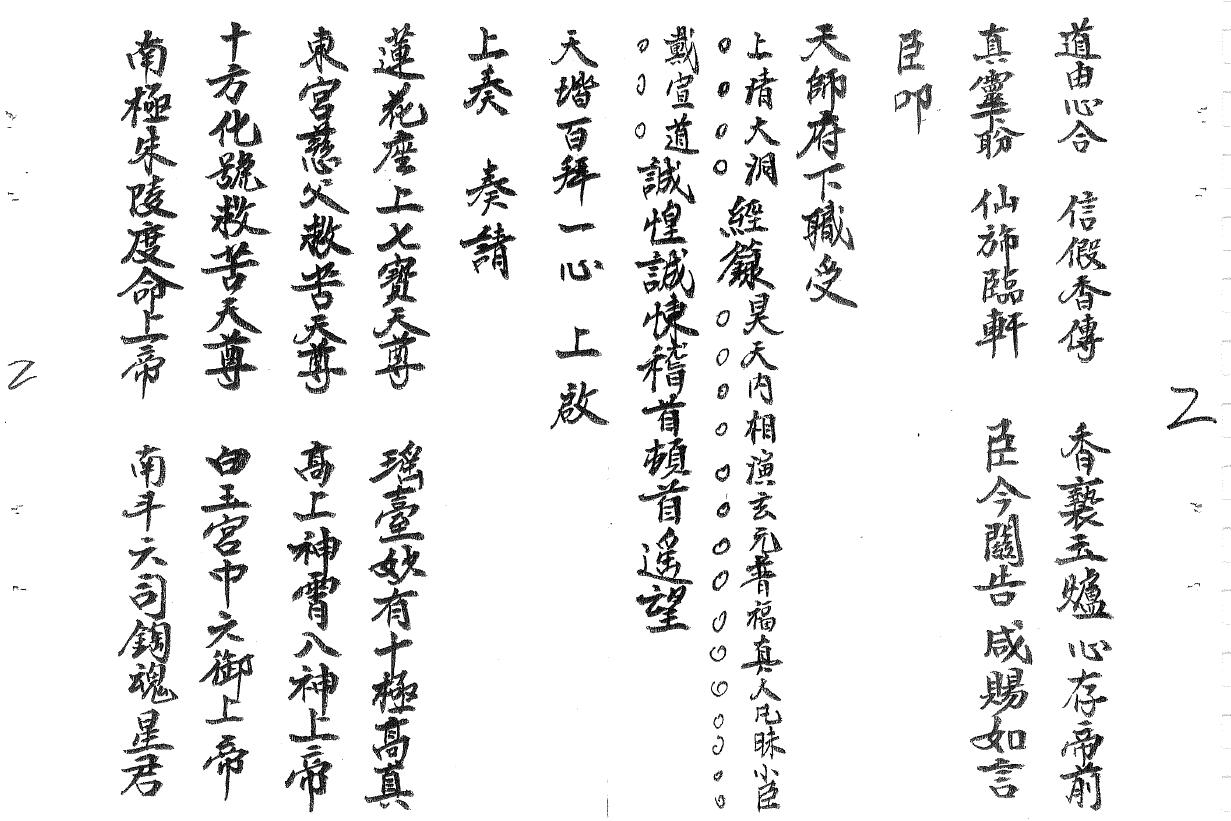 2
道由心合　信假香傳　香爇玉爐　心存帝前
真靈盼　仙斾臨軒　臣今關告　咸賜如言
臣叩
天師府下職受
上清大洞經籙昊天內相演玄元普福真人凡昧小臣
戴宣道誠惶誠悚稽首頓首遥望
天堦百拜一心　上啟
上奏　奏請
蓮花座上七寶天尊　瑤臺妙有十極高真
東宮慈父救苦天尊　高上神霄八神上帝
十方化號救苦天尊　白玉宮中六御上帝
南極朱陵度命上帝　南斗六司魂星君
2